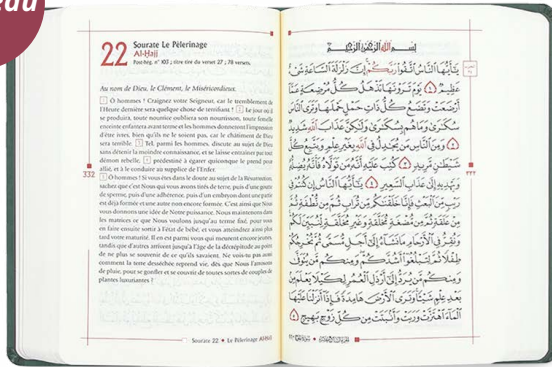 eau
22
Sourate Le Pèlerinage
Al-Ḥajj
Post-hég. n° 103 ; titre tiré du verset 27 ; 78 versets.
Au nom de Dieu, le Clément, le Miséricordieux.
1 Ô hommes ! Craignez votre Seigneur, car le tremblement de
l'Heure dernière sera quelque chose de terrifiant ! 2 Le jour où il
se produira, toute nourrice oubliera son nourrisson, toute femelle
enceinte enfantera avant terme et les hommes donneront l'impression
d'être ivres, bien qu'ils ne le soient pas, car le châtiment de Dieu
sera terrible. 3 Tel, parmi les hommes, discute au sujet de Dieu
sans détenir la moindre connaissance, et se laisse entraîner par tout
démon rebelle, 4 prédestiné à égarer quiconque le prend pour
allié, et à le conduire au supplice de l'Enfer.
5 Ô hommes ! Si vous êtes dans le doute au sujet de la Résurrection,
sachez que c'est Nous qui vous avons tirés de terre, puis d'une goutte
de sperme, puis d'une adhérence, puis d'un embryon dont une partie
est déjà formée et une autre non encore formée. C'est ainsi que Nous
vous donnons une idée de Notre puissance. Nous maintenons dans
les matrices ce que Nous voulons jusqu'au terme fixé, pour vous
en faire ensuite sortir à l'état de bébé, et vous atteindrez ainsi plus
tard votre maturité. Il en est parmi vous qui meurent encore jeunes,
tandis que d'autres arrivent jusqu'à l'âge de la décrépitude au point
de ne plus se souvenir de ce qu'ils savaient. Ne vois-tu pas aussi
comment la terre desséchée reprend vie, dès que Nous l'amenons
de pluie, pour se gonfler et se couvrir de toutes sortes de couples de
plantes luxuriantes ?
332
Sourate 22 • Le Pèlerinage Al-Ḥajj
بِسْمِ اللَّهِ الرَّحْمَٰنِ الرَّحِيمِ
يَا أَيُّهَا النَّاسُ اتَّقُوا رَبَّكُمْ إِنَّ زَلْزَلَةَ السَّاعَةِ شَيْءٌ
عَظِيمٌ ١ يَوْمَ تَرَوْنَهَا تَذْهَلُ كُلُّ مُرْضِعَةٍ عَمَّا
أَرْضَعَتْ وَتَضَعُ كُلُّ ذَاتِ حَمْلٍ حَمْلَهَا وَتَرَى النَّاسَ
سُكَارَىٰ وَمَا هُم بِسُكَارَىٰ وَلَٰكِنَّ عَذَابَ اللَّهِ شَدِيدٌ
٢ وَمِنَ النَّاسِ مَن يُجَادِلُ فِي اللَّهِ بِغَيْرِ عِلْمٍ وَيَتَّبِعُ كُلَّ
شَيْطَانٍ مَّرِيدٍ ٣ كُتِبَ عَلَيْهِ أَنَّهُ مَن تَوَلَّاهُ فَأَنَّهُ يُضِلُّهُ
وَيَهْدِيهِ إِلَىٰ عَذَابِ السَّعِيرِ ٤ يَا أَيُّهَا النَّاسُ إِن كُنتُمْ فِي
رَيْبٍ مِّنَ الْبَعْثِ فَإِنَّا خَلَقْنَاكُم مِّن تُرَابٍ ثُمَّ مِن نُّطْفَةٍ ثُمَّ
مِنْ عَلَقَةٍ ثُمَّ مِن مُّضْغَةٍ مُّخَلَّقَةٍ وَغَيْرِ مُخَلَّقَةٍ لِّنُبَيِّنَ لَكُمْ
وَنُقِرُّ فِي الْأَرْحَامِ مَا نَشَاءُ إِلَىٰ أَجَلٍ مُّسَمًّى ثُمَّ نُخْرِجُكُمْ
طِفْلًا ثُمَّ لِتَبْلُغُوا أَشُدَّكُمْ وَمِنكُم مَّن يُتَوَفَّىٰ
وَمِنكُم مَّن يُرَدُّ إِلَىٰ أَرْذَلِ الْعُمُرِ لِكَيْلَا يَعْلَمَ مِن
بَعْدِ عِلْمٍ شَيْئًا وَتَرَى الْأَرْضَ هَامِدَةً فَإِذَا أَنزَلْنَا عَلَيْهَا
الْمَاءَ اهْتَزَّتْ وَرَبَتْ وَأَنبَتَتْ مِن كُلِّ زَوْجٍ بَهِيجٍ ٥
٣٣٢